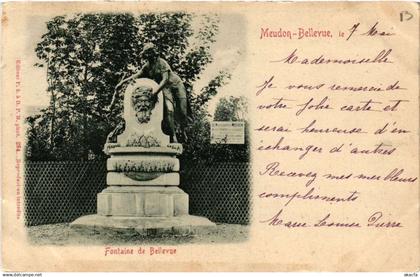 Meudon-Bellevue, le 7 Mai
Mademoiselle
Je vous remercie de
votre jolie carte et
serai heureuse d'en
échanger d'autres
Recevez mes meilleurs
compliments
Marie Louise
Fontaine de Bellevue